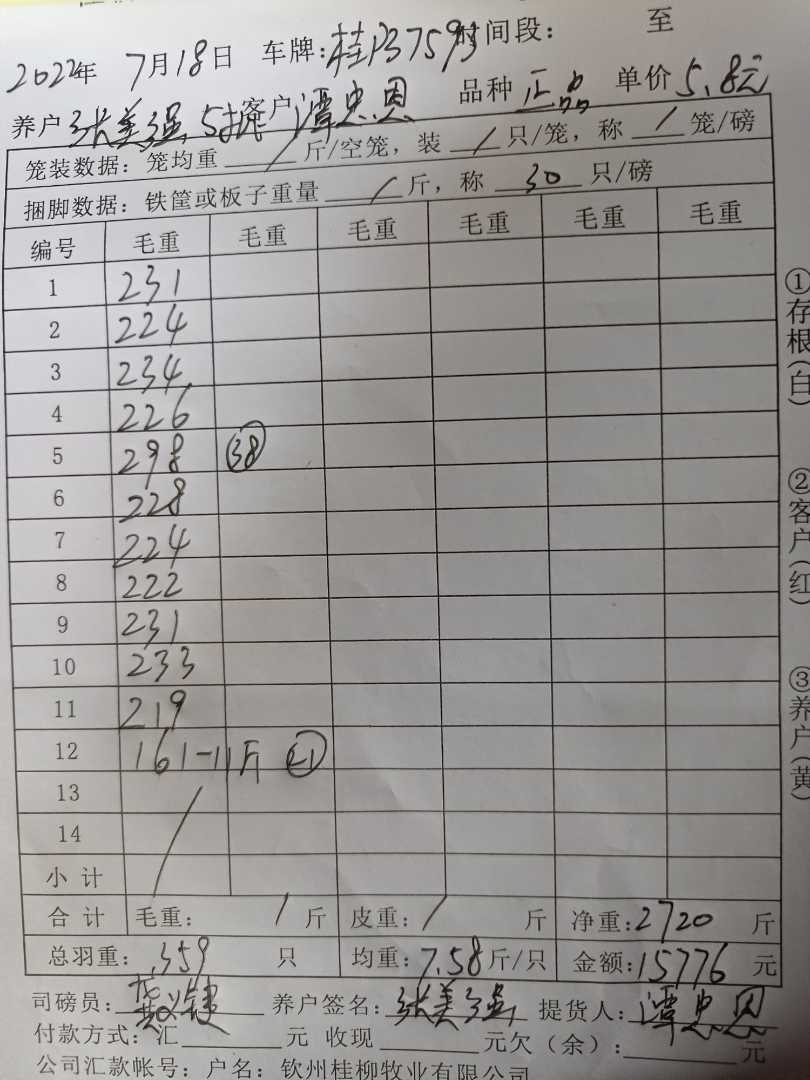 2022年 7月18日 车牌:桂P37593 时间段: 至
养户 张美强 5批 客户 谭忠恩 品种 正品 单价 5.8元
笼装数据: 笼均重 / 斤/空笼, 装 / 只/笼, 称 / 笼/磅
捆脚数据: 铁筐或板子重量 / 斤, 称 30 只/磅
编号 毛重 毛重 毛重 毛重 毛重 毛重
1 231
2 224
3 234
4 226
5 298 38
6 228
7 224
8 222
9 231
10 233
11 219
12 161-11斤 21
13
14
小计
合计 毛重: / 斤 皮重: / 斤 净重:2720 斤
总羽重: 359 只 均重:7.58斤/只 金额:15776 元
司磅员: 养户签名:张美强 提货人:谭忠恩
付款方式:汇 元 收现 元欠(余): 元
公司汇款帐号: 户名: 钦州桂柳牧业有限公司
①存根(白)
②客户(红)
③养户(黄)